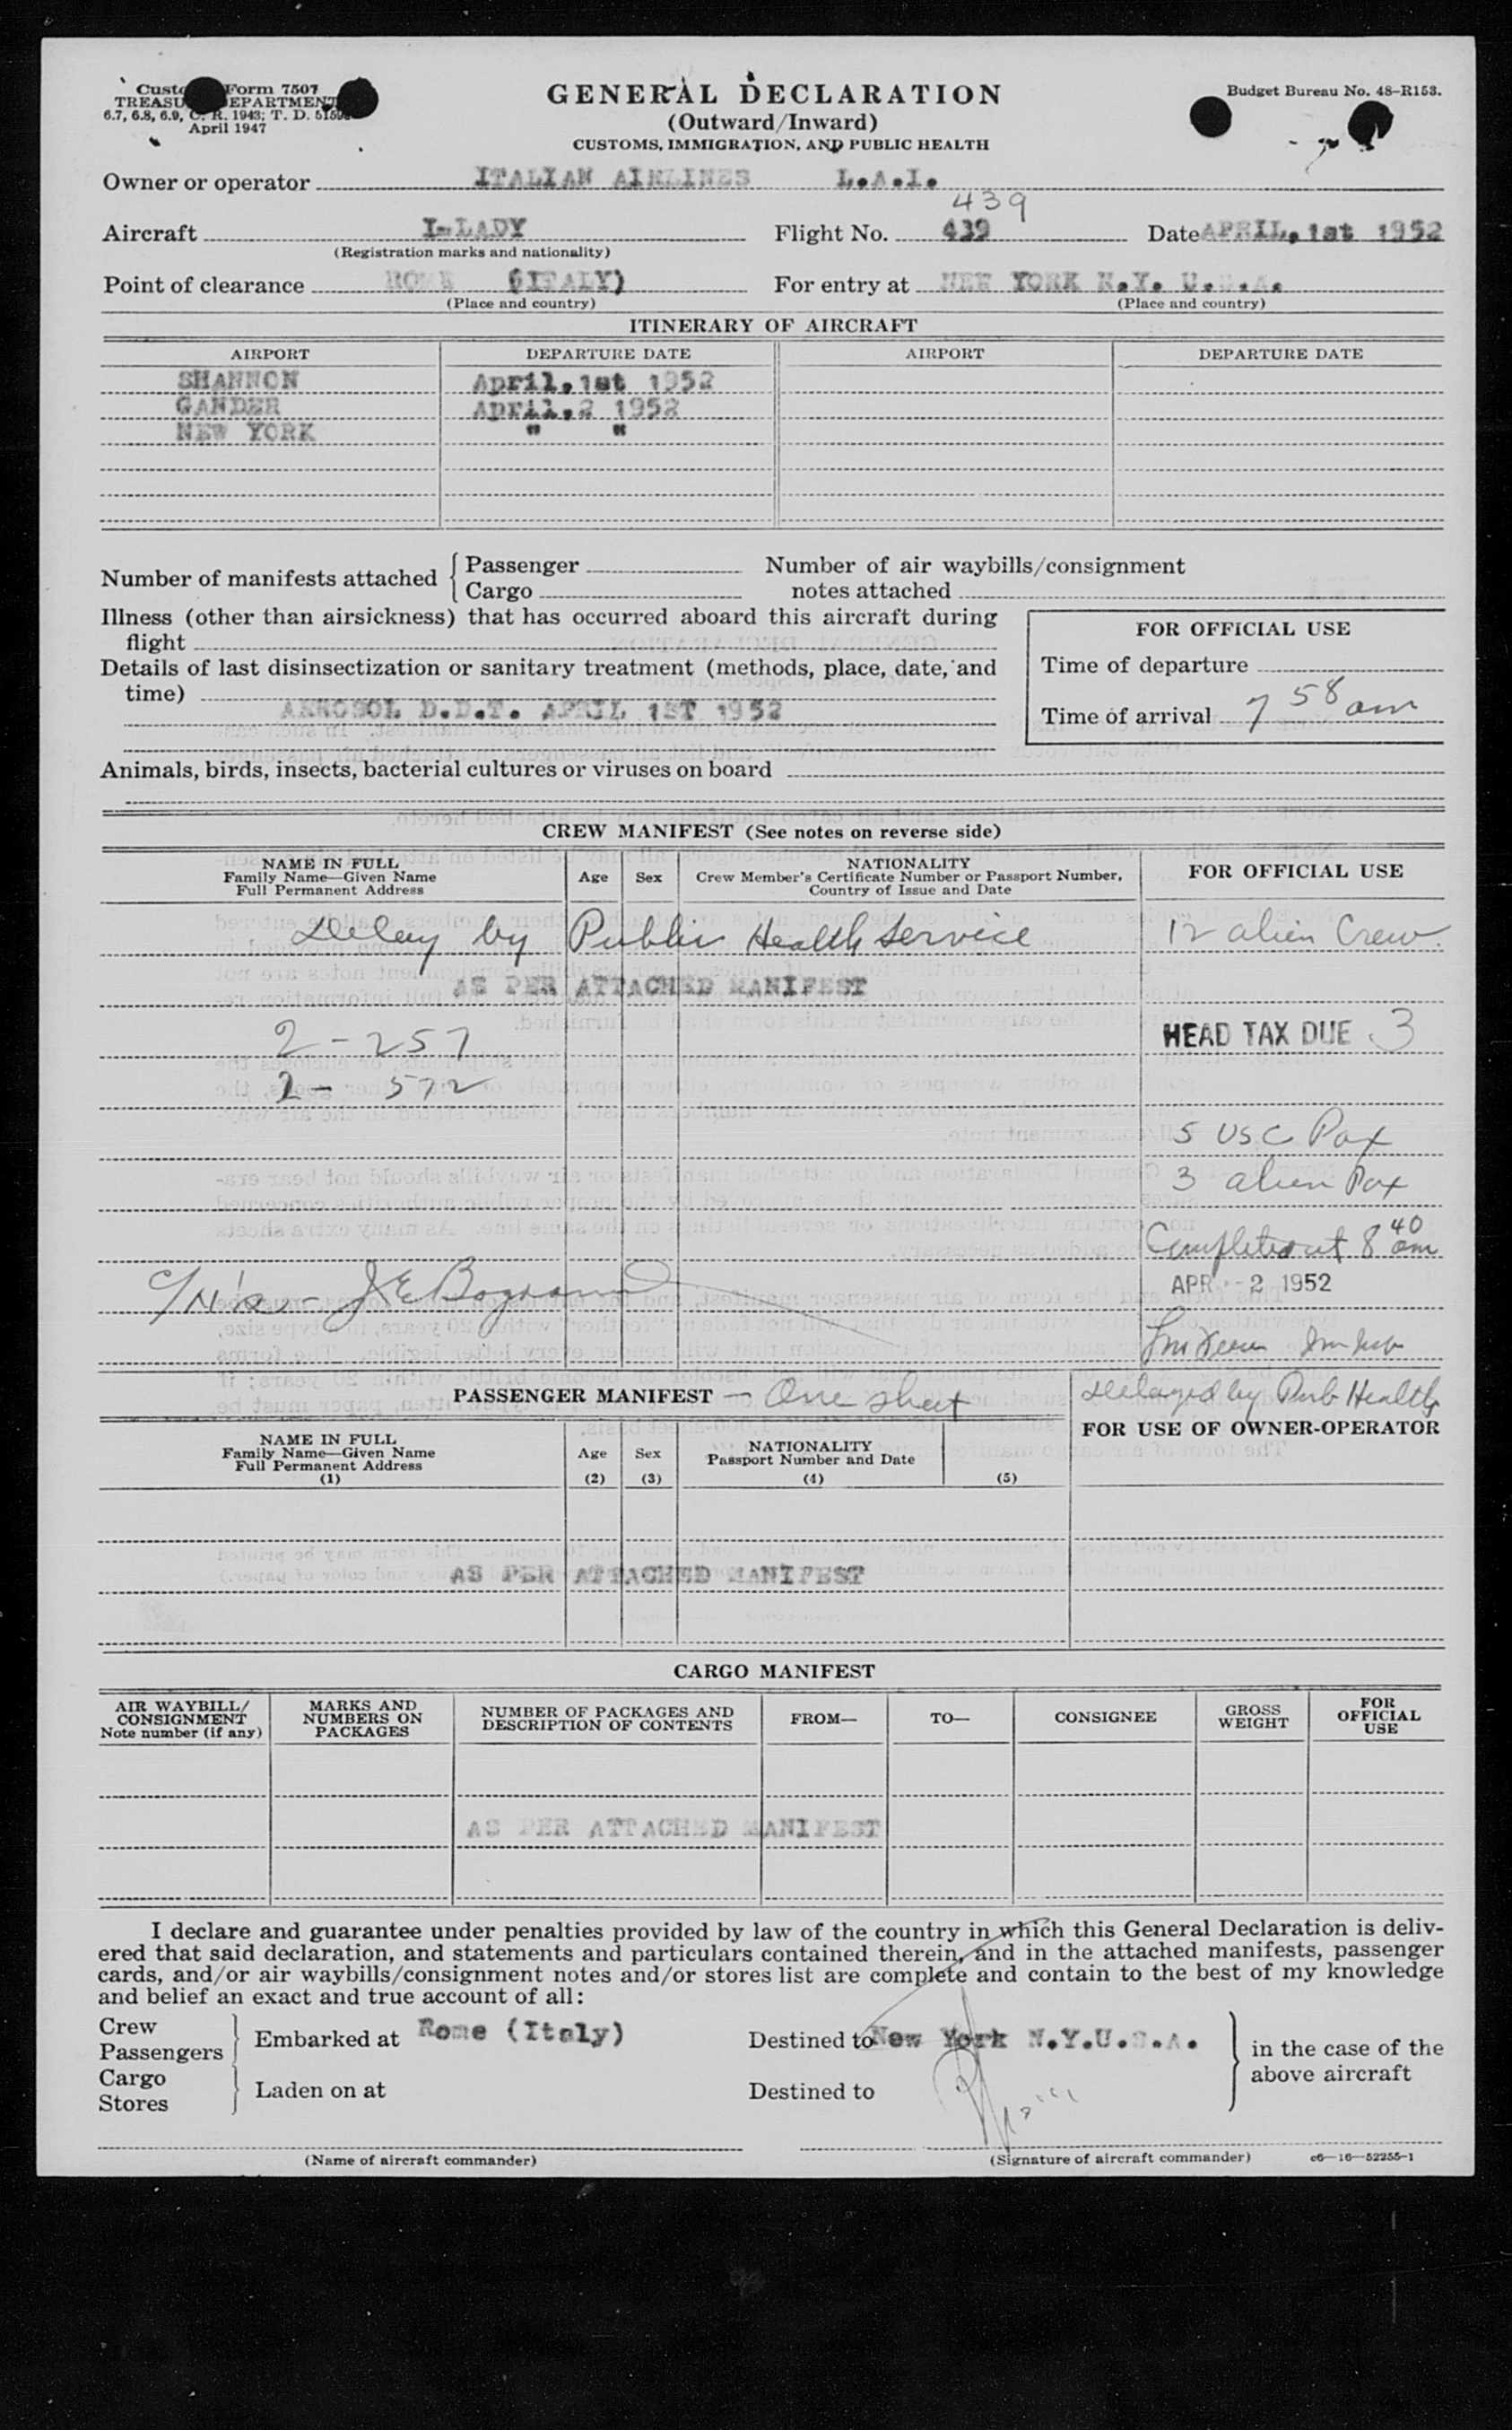 Customs Form 7507
TREASURY DEPARTMENT
6.7, 6.8, 6.9, C. R. 1943; T. D.
April 1947
GENERAL DECLARATION
(Outward/Inward)
CUSTOMS, IMMIGRATION, AND PUBLIC HEALTH
Budget Bureau No. 48-R153.
Owner or operator ITALIAN AIRLINES L.A.I.
439
Aircraft I-LADY Flight No. 439 Date APRIL, 1st 1952
(Registration marks and nationality)
Point of clearance ROME (ITALY) For entry at NEW YORK N.Y. U.S.A.
(Place and country) (Place and country)
ITINERARY OF AIRCRAFT
AIRPORT DEPARTURE DATE AIRPORT DEPARTURE DATE
SHANNON April, 1st 1952
GANDER April, 2 1952
NEW YORK " "
Number of manifests attached { Passenger
Cargo
Number of air waybills/consignment
notes attached
Illness (other than airsickness) that has occurred aboard this aircraft during
flight
Details of last disinsectization or sanitary treatment (methods, place, date, and
time)
AEROSOL D.D.T. APRIL 1ST 1952
FOR OFFICIAL USE
Time of departure
Time of arrival 7 58 am
Animals, birds, insects, bacterial cultures or viruses on board
CREW MANIFEST (See notes on reverse side)
NAME IN FULL
Family Name—Given Name
Full Permanent Address
Age Sex
NATIONALITY
Crew Member's Certificate Number or Passport Number,
Country of Issue and Date
FOR OFFICIAL USE
Delay by Public Health Service 12 alien Crew.
AS PER ATTACHED MANIFEST
2 - 257 HEAD TAX DUE 3
2 - 572
5 USC Pax
3 alien Pax
Completed at 8 40 am
APR - 2 1952
PASSENGER MANIFEST — One sheet
Delayed by Pub Health
FOR USE OF OWNER-OPERATOR
NAME IN FULL
Family Name—Given Name
Full Permanent Address
(1)
Age
(2)
Sex
(3)
NATIONALITY
Passport Number and Date
(4) (5)
AS PER ATTACHED MANIFEST
CARGO MANIFEST
AIR WAYBILL/
CONSIGNMENT
Note number (if any)
MARKS AND
NUMBERS ON
PACKAGES
NUMBER OF PACKAGES AND
DESCRIPTION OF CONTENTS
FROM— TO— CONSIGNEE
GROSS
WEIGHT
FOR
OFFICIAL
USE
AS PER ATTACHED MANIFEST
I declare and guarantee under penalties provided by law of the country in which this General Declaration is deliv-
ered that said declaration, and statements and particulars contained therein, and in the attached manifests, passenger
cards, and/or air waybills/consignment notes and/or stores list are complete and contain to the best of my knowledge
and belief an exact and true account of all:
Crew
Passengers } Embarked at Rome (Italy) Destined to New York N.Y.U.S.A.
Cargo
Stores } Laden on at Destined to
in the case of the
above aircraft
(Name of aircraft commander) (Signature of aircraft commander) c6—16—52255-1